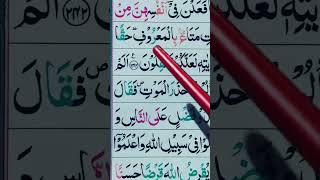 فَعَلْنَ فِيْٓ اَنْفُسِهِنَّ مِنْ
تِ مَتَاعٌۢ بِالْمَعْرُوْفِ ؕ حَقًّا
يٰتِهٖ لَعَلَّكُمْ اَلَمْ
حَذَرَ الْمَوْتِ فَقَالَ
عَلَى النَّاسِ وَ
لُوْا فِيْ سَبِيْلِ اللّٰهِ وَاعْلَمُوْٓا
يُقْرِضُ اللّٰهَ قَرْضًا حَسَنًا